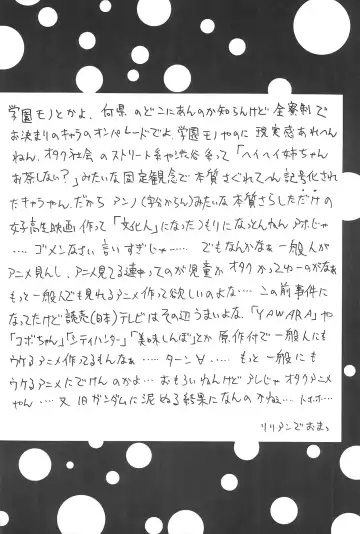 学園モノとかよ、何県のどこにあんのか知らんけど全寮制で
お決まりのキャラのオンパレードでよ、学園モノやのに現実感あれへん
ねん。オタク社会のストリート系や渋谷系って「ヘイヘイ姉ちゃん
お茶しない?」みたいな固定観念で本質さぐれてへん記号化され
たキャラやん。だから アンノ みたいな本質さらしただけの
女子高生映画作って「文化人」になったつもりになっとんねん アホじゃ
…. ゴメンなさい 言いすぎじゃ…… でもなんかなぁ 一般人が
アニメ見んし。アニメ見てる連中ってのが児童かオタクかってゆーのがなぁ
もっと一般人でも見れるアニメ作って欲しいのよな…. この前事件に
なってたけど読売(日本)テレビはその辺うまいよな。「YAWARA」や
「コボちゃん」「シティハンター」「美味しんぼ」とか原作付で一般人にも
ウケるアニメ作ってるもんなぁ ….. ターン∀ ….. もっと一般にも
ウケるアニメにでけんのかよ…おもろいねんけどアレじゃオタクアニメ
やん…. 又 旧ガンダムに泥ぬる結果になんのかねぇ…. トホホ….
リリアンでおまっ